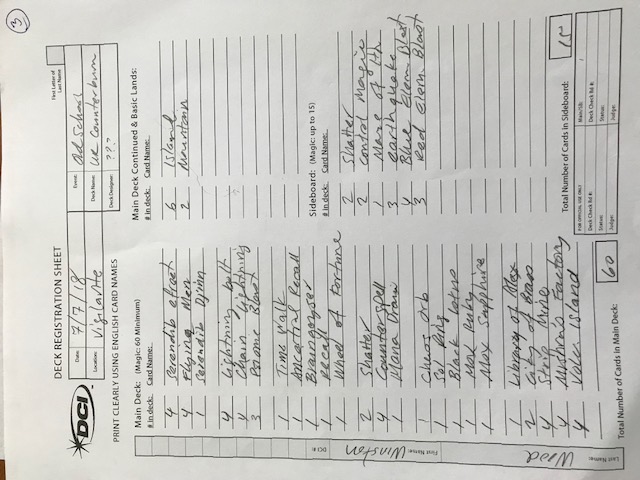 3
DECK REGISTRATION SHEET
First Letter of
Last Name
DCI
Date: 7/7/18
Event: Old School
Location: Vigilante
Deck Name: UR Counterburn
Deck Designer: ???
PRINT CLEARLY USING ENGLISH CARD NAMES
Main Deck: (Magic: 60 Minimum)
# in deck: Card Name:
4 Serendib efreet
4 Flying Men
1 Serendib Djinn
4 Lightning bolt
4 Chain Lightning
3 Psionic Blast
1 Time Walk
1 Ancestral Recall
1 Braingeyser
1 Recall
1 Wheel of Fortune
2 Shatter
4 Counterspell
1 Mana Drain
1 Chaos Orb
1 Sol Ring
1 Black Lotus
1 Mox Ruby
1 Mox Sapphire
1 Library of Alex
2 City of Brass
4 Strip Mine
4 Mishra's Factory
4 Volc. Island
Total Number of Cards in Main Deck: 60
Main Deck Continued & Basic Lands:
# in deck: Card Name:
6 Island
2 Mountain
Sideboard: (Magic: up to 15)
# in deck: Card Name:
2 Shatter
2 Control Magic
1 Maze of Ith
3 earthquake
4 Blue Elem. Blast
3 Red Elem. Blast
Total Number of Cards in Sideboard: 15
FOR OFFICIAL USE ONLY
Main/SB: /
Deck Check Rd #:
Deck Check Rd #:
Status:
Status:
Judge:
Judge:
DCI #:
First Name: Winston
Last Name: Wood